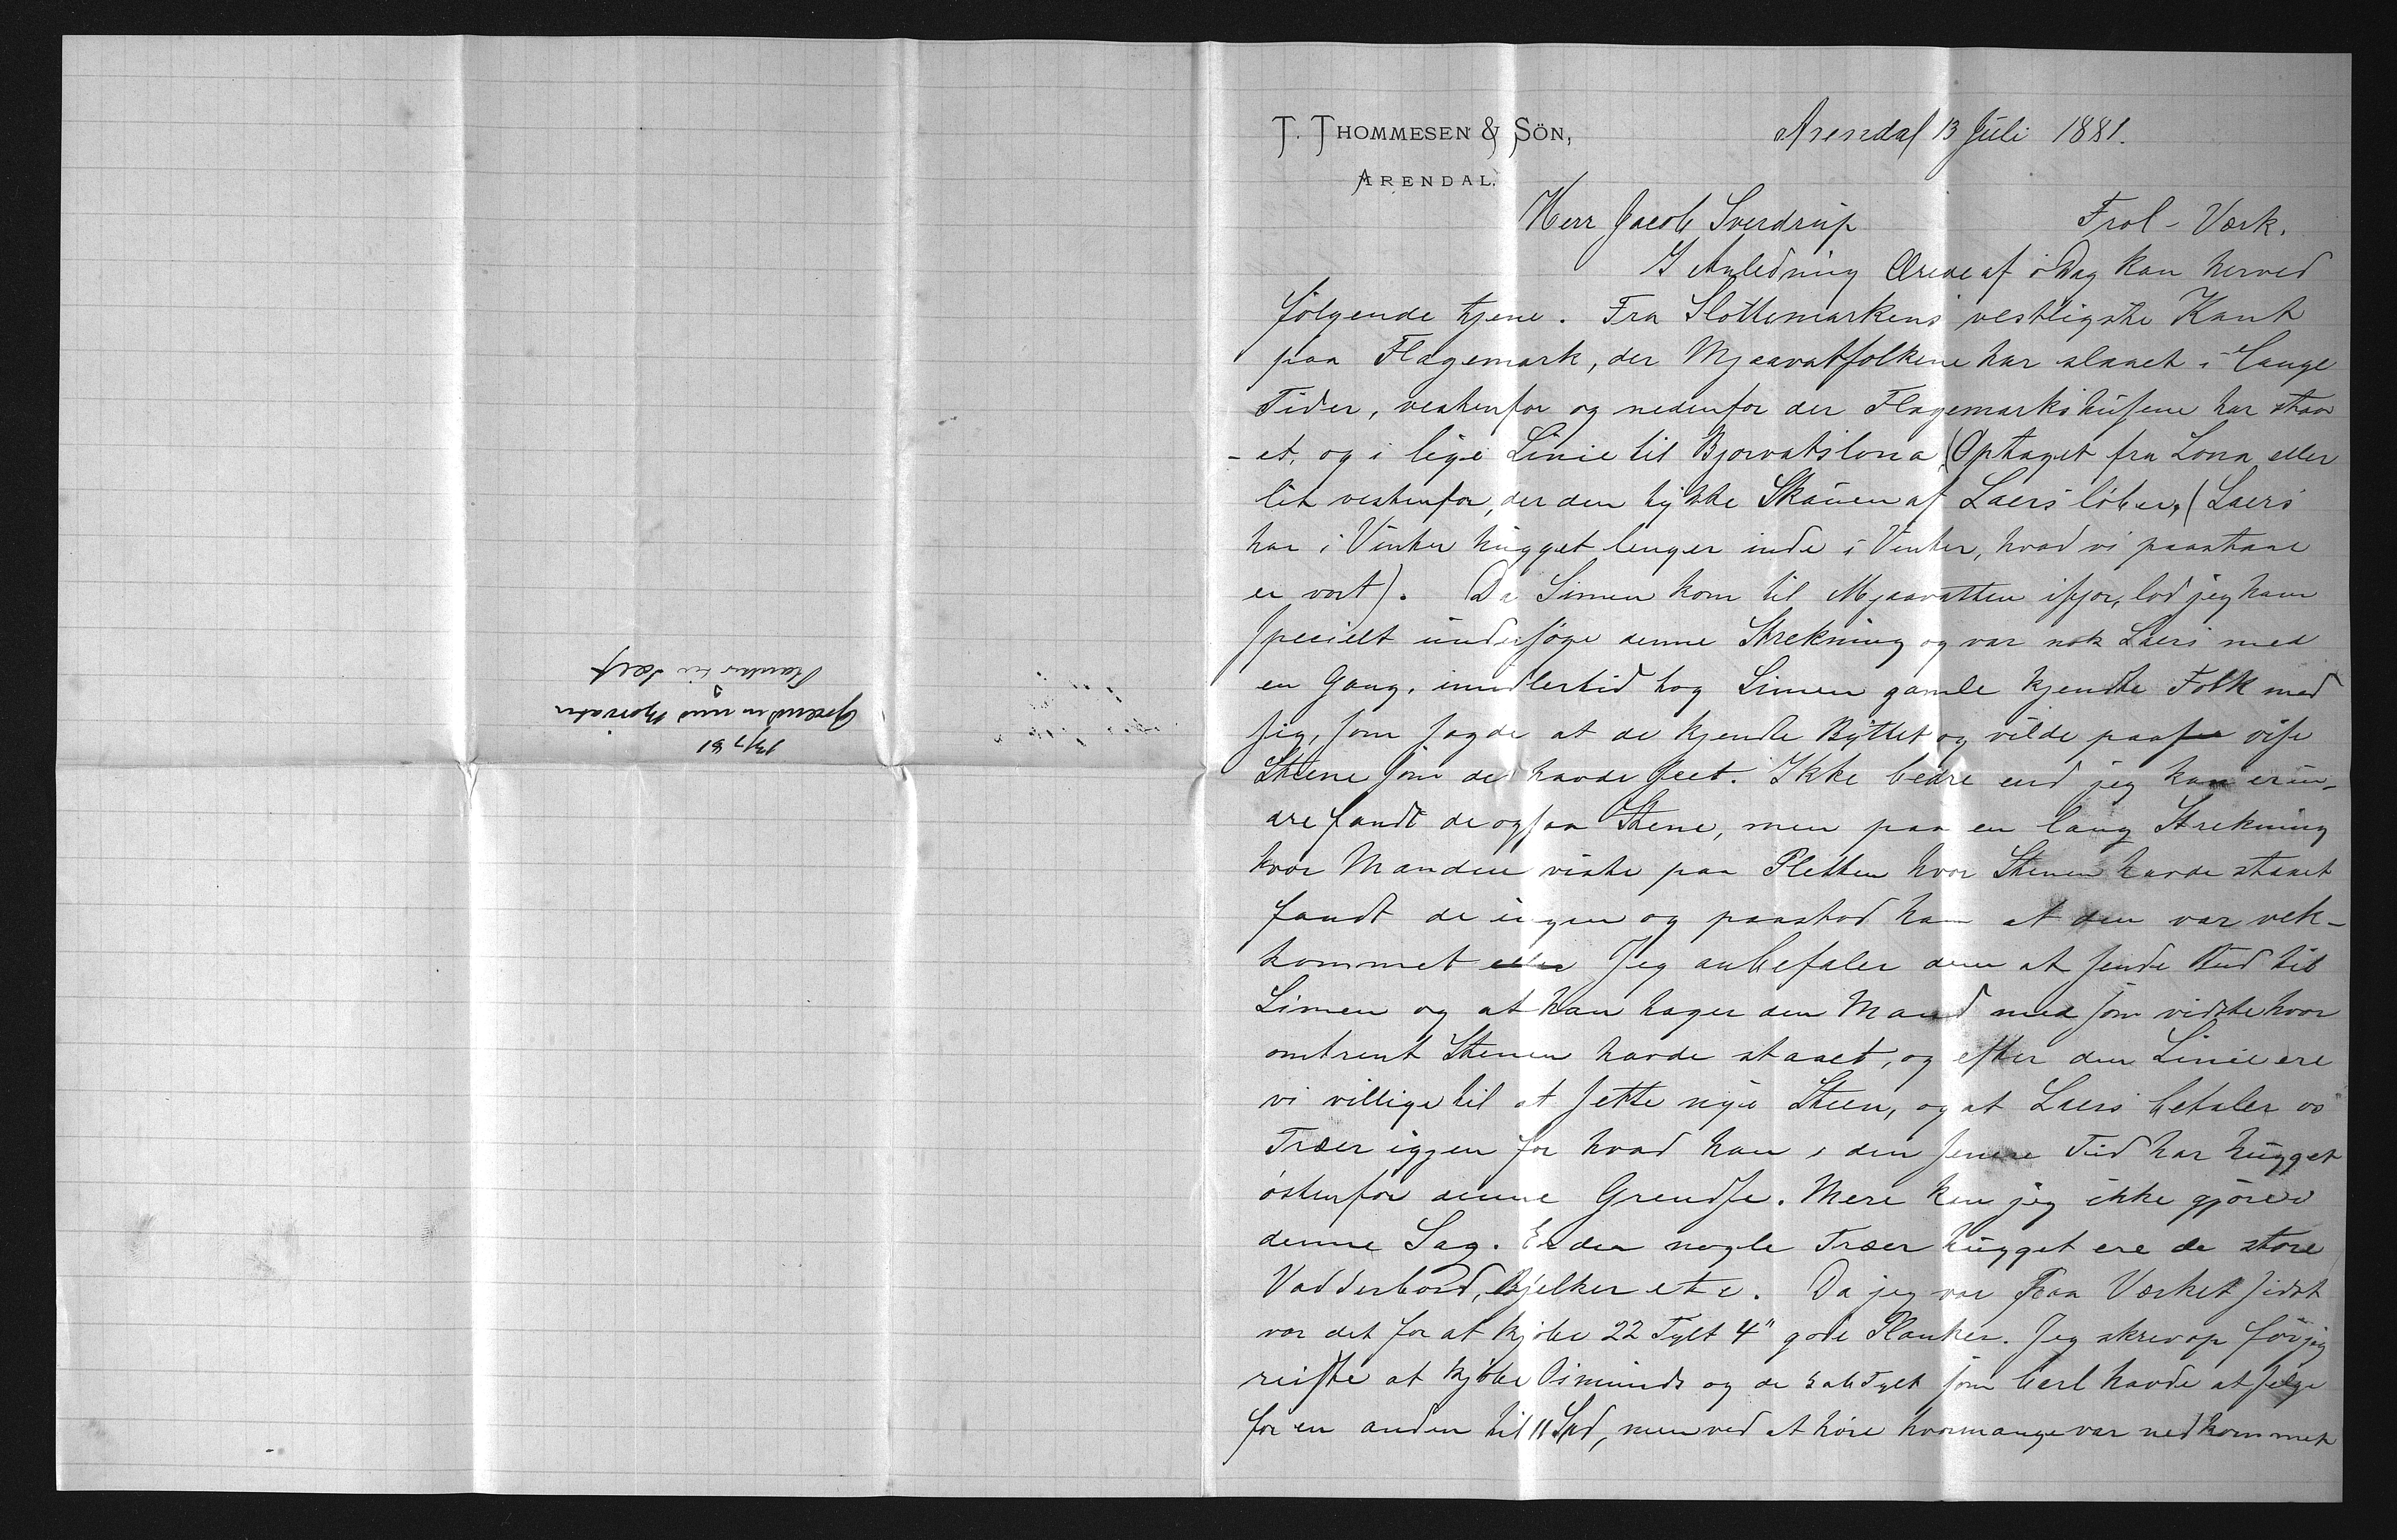 T. THOMMESEN & SÖN,
ARENDAL.
Arendal 13 Juli 1881.
Herr Jacob Sverdrup Frol-Værk.
I Anledning Deres af i Dag kan herved
følgende tjene. Fra Slottemarkens vestligste Kant
paa Flagemark, der Mjaavatfolkene har slaaet i lange
Tider, vestenfor og nedenfor der Flagemarkshusene har staa
-et, og i lige Linie til Bjorvatslona (Optaget fra Lona eller
lit vestenfor, der den tykke Skauen af Laers løber, (Laers
har i Vinter hugget lenger inde i Vinter, hvad vi paastaae
er vort). Da Simen kom til Mjaavatten ifjor, lod jeg ham
specielt undersøge denne Strekning og var nok Laers med
en Gang, imidlertid tog Simen gamle kjendte Folk med
sig, som sagde at de kjendte Byttet og vilde paa vise
Stene som de havde seet. Ikke bedre end jeg kan erin-
dre fandt de ogsaa Stene, men paa en lang Strekning
hvor Manden viste paa Pletten hvor Stenen havde staaet
fandt de ingen og paastod han at den var vek-
kommet Jeg anbefaler dem at sende Bud til
Simen og at han tager den Mand med som vidste hvor
omtrent Stenen havde staaet, og efter den Linie ere
vi villige til at sette nye Steen, og at Laers betaler os
Træer igjen for hvad han i den senere Tid har hugget
østenfor denne Grendse. Mere kan jeg ikke gjøre i
denne Sag. Er der nogle Træer hugget ere de store
Vadderbord, Bjelker etc. Da jeg var paa Værket sidst
var det for at kjøbe 22 Tylt 4" gode Planker. Jeg skrev op før jeg
reiste at kjøbe Osmunds og de Tylt som Carl havde at selge
for en anden til 11 Spd, men ved at høre hvormange var nedkommet
13/7 81
Grendsen med Bjorvatn
Planker til Salg